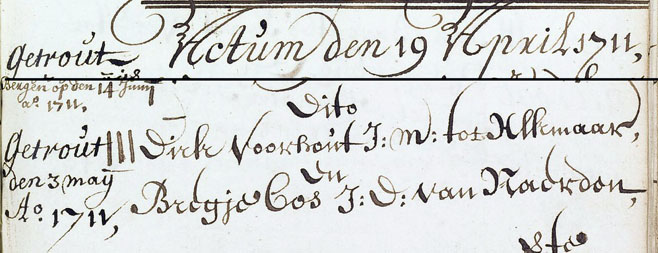 Getrout Actum den 19 Aprill 1711,
Bergen op den 14 Junij
aº 1711,
Dito
Getrout III Dirk Voorhout J: M: tot Alkmaar,
den 3 maÿ en
Aº 1711, Bregje Cos J: D: van Naerden,